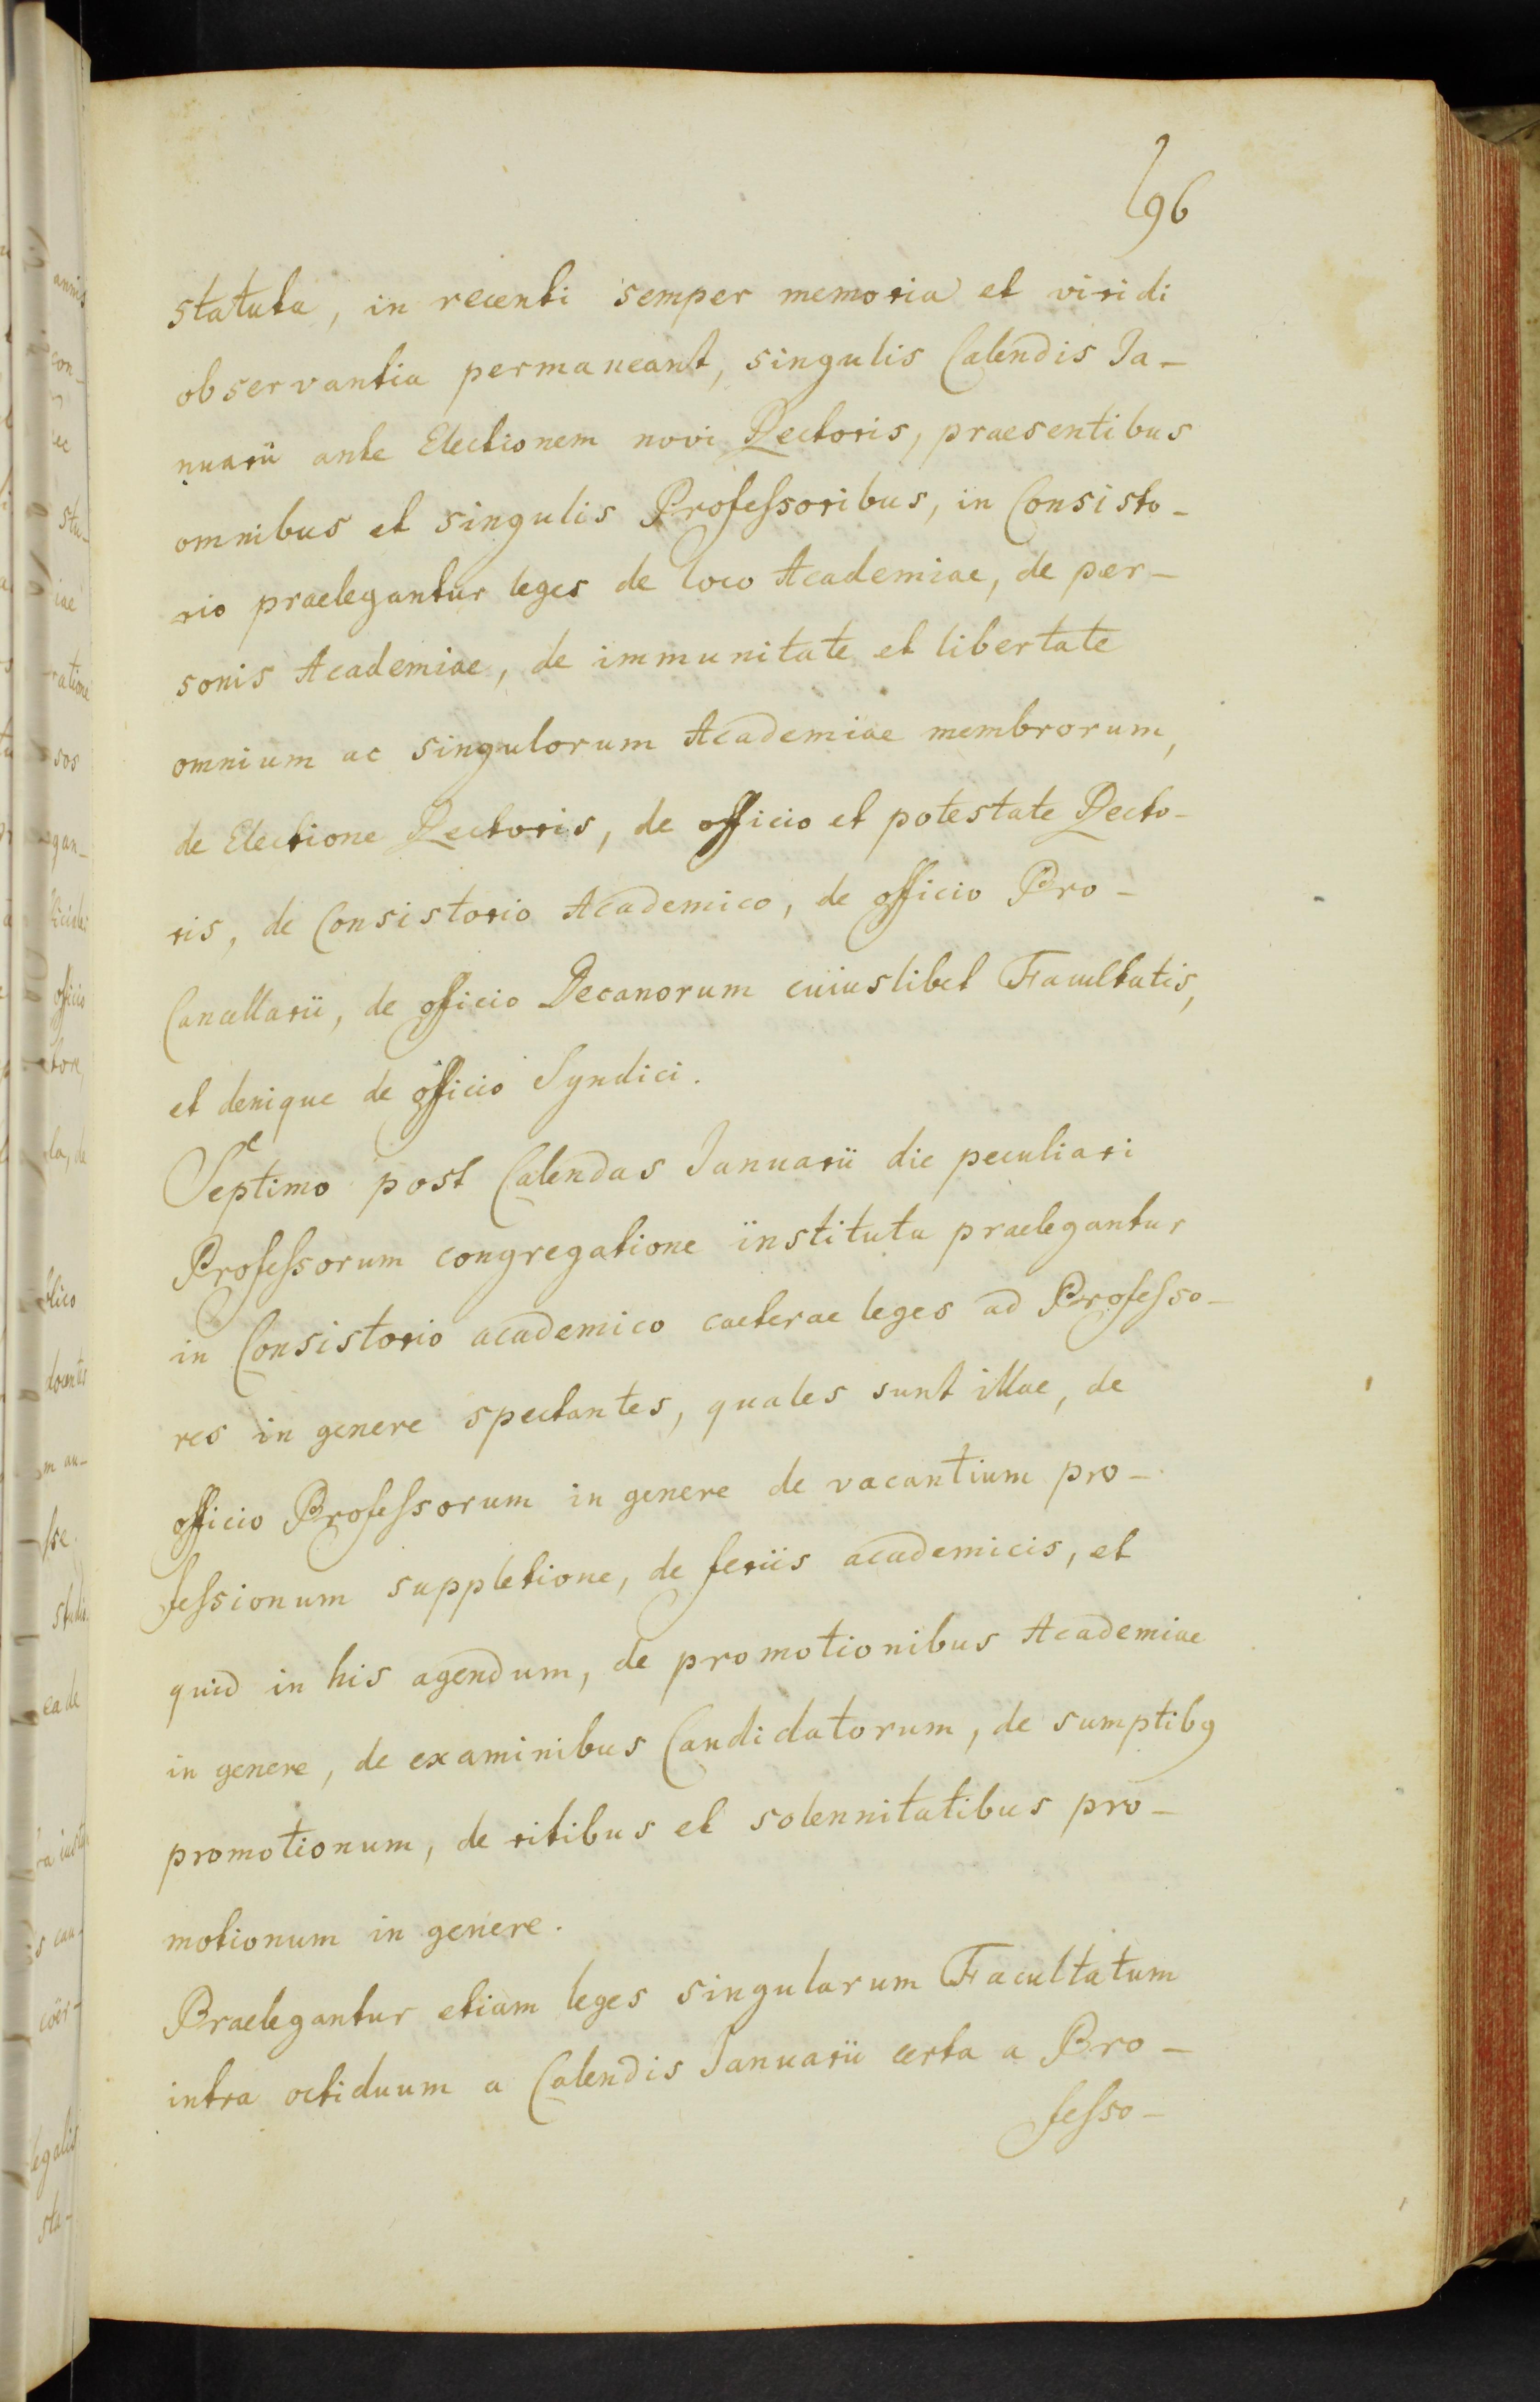 96
statuta, in recenti semper memoria et viridi
observantia permaneant, singulis Calendis Ja-
nuarii ante Electionem novi Rectoris, praesentibus
omnibus et singulis Professoribus, in Consisto-
rio praelegantur leges de loco Academiae, de per-
sonis Academiae, de immunitate et libertate
omnium ac singulorum Academiae membrorum,
de Electione Rectoris, de officio et potestate Recto-
ris, de Consistorio Academico, de officio Pro-
Cancellarii, de officio Decanorum cuiuslibet Facultatis,
et denique de officio Syndici.
Septimo post Calendas Januarii die peculiari
Professorum congregatione instituta praelegantur
in Consistorio academico caeterae leges ad Professo-
res in genere spectantes, quales sunt illae, de
officio Professorum in genere de vacantium pro-
fessionum suppletione, de feriis academicis, et
quid in his agendum, de promotionibus Academiae
in genere, de examinibus Candidatorum, de sumptibꝰ
promotionum, de ritibus et solennitatibus pro-
motionum in genere.
Praelegantur etiam leges singularum Facultatum
intra octiduum a Calendis Januarii certa a Pro-
fesso-